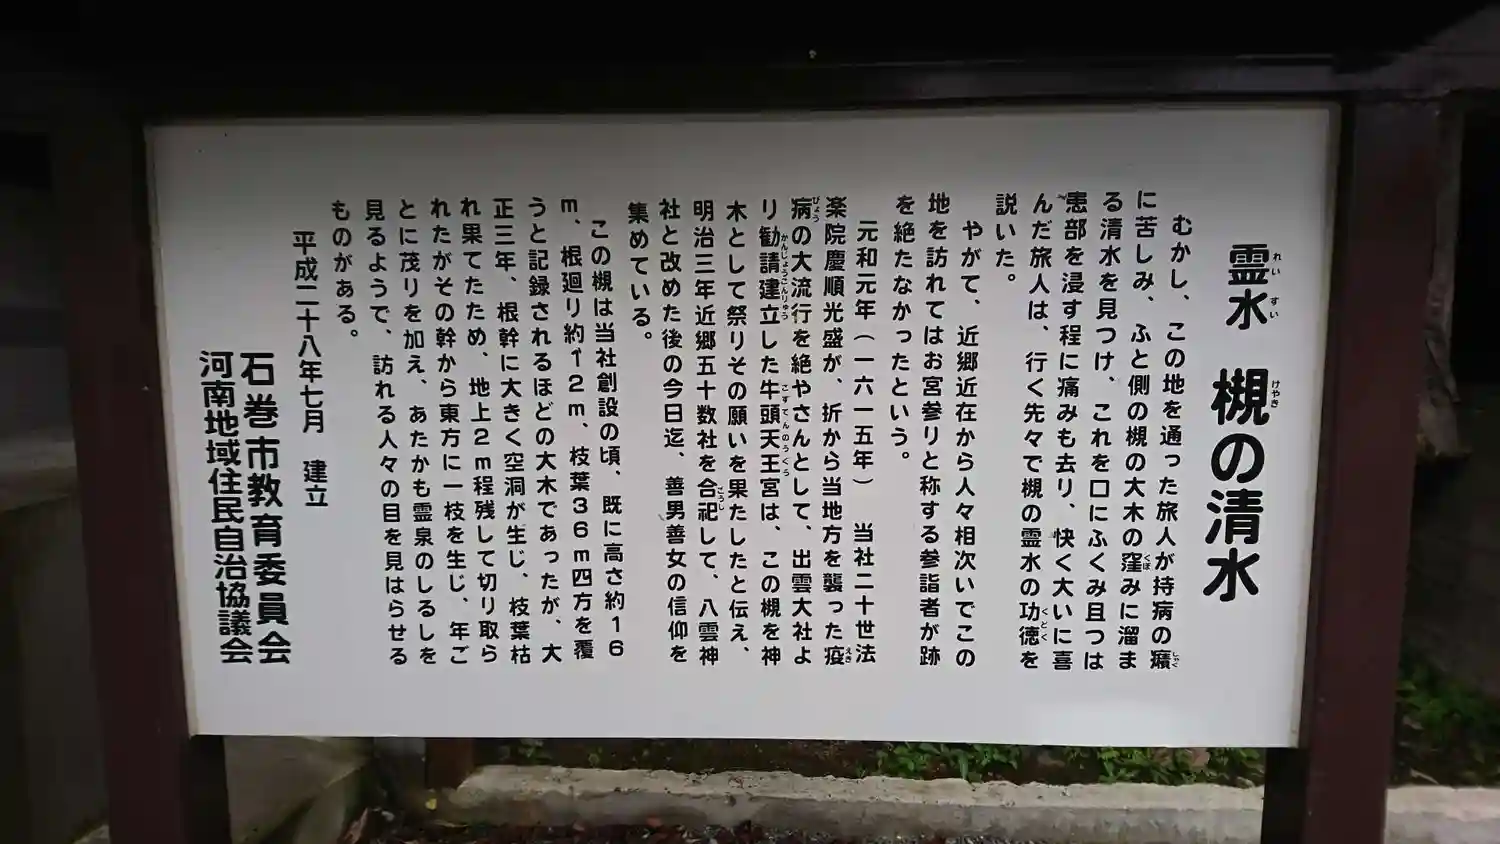 霊水 槻の清水
れい すい けやき
むかし、この地を通った旅人が持病の癪
しゃく
に苦しみ、ふと側の槻の大木の窪みに溜ま
くぼ
る清水を見つけ、これを口にふくみ且つは
患部を浸す程に痛みも去り、快く大いに喜
んだ旅人は、行く先々で槻の霊水の功徳を
くどく
説いた。
やがて、近郷近在から人々相次いでこの
地を訪れてはお宮参りと称する参詣者が跡
を絶たなかったという。
元和元年(一六一五年) 当社二十世法
楽院慶順光盛が、折から当地方を襲った疫
えき
病の大流行を絶やさんとして、出雲大社よ
びょう
り勧請建立した牛頭天王宮は、この槻を神
かんじょうこんりゅう ごずてんのうぐう
木として祭りその願いを果たしたと伝え、
明治三年近郷五十数社を合祀して、八雲神
ごうし
社と改めた後の今日迄、善男善女の信仰を
集めている。
この槻は当社創設の頃、既に高さ約16
m、根廻り約12m、枝葉36m四方を覆
うと記録されるほどの大木であったが、大
正三年、根幹に大きく空洞が生じ、枝葉枯
れ果てたため、地上2m程残して切り取ら
れたがその幹から東方に一枝を生じ、年ご
とに茂りを加え、あたかも霊泉のしるしを
見るようで、訪れる人々の目を見はらせる
ものがある。
平成二十八年七月 建立
石巻市教育委員会
河南地域住民自治協議会